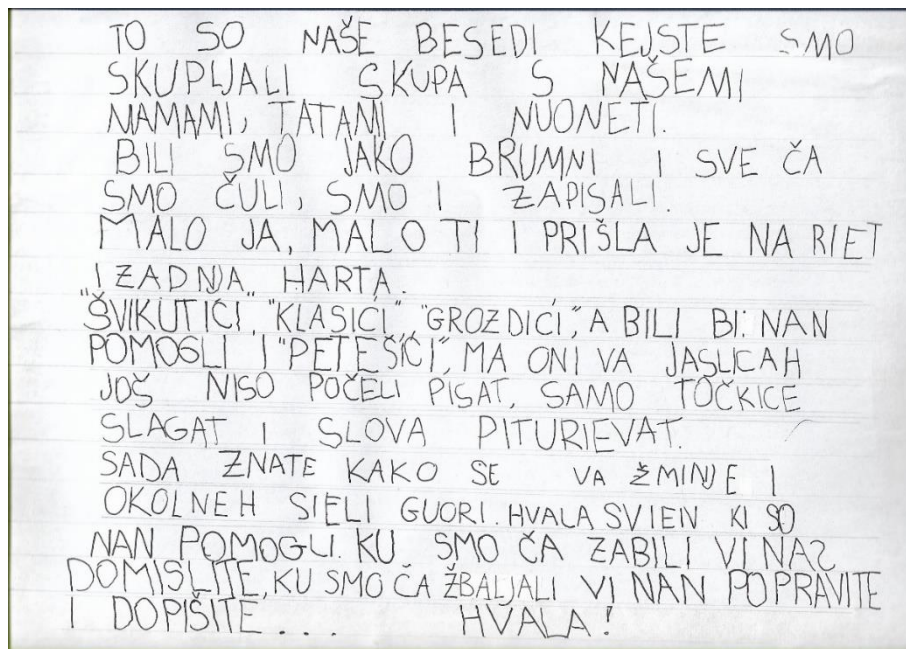 TO SO NAŠE BESEDI KEJSTE SMO
SKUPLJALI SKUPA S NAŠEMI
NAMAMI, TATAMI I NUONETI.
BILI SMO JAKO BRUMNI I SVE ČA
SMO ČULI, SMO I ZAPISALI.
MALO JA, MALO TI I PRIŠLA JE NA RIET
I ZADNJA HARTA.
"ŠVIKUTIĆI", "KLASIĆI", "GROZDIĆI", A BILI BI: NAN
POMOGLI I "PETEŠIĆI", MA ONI VA JASLICAH
JOŠ NISO POČELI PISAT, SAMO TOČKICE
SLAGAT I SLOVA PITURIEVAT.
SADA ZNATE KAKO SE VA ŽMINJE I
OKOLNEH SIELI GUORI. HVALA SVIEN KI SO
NAN POMOGLI. KU SMO ČA ZABILI VI NAS
DOMISLITE, KU SMO ČA ŽBALJALI VI NAN POPRAVITE
I DOPIŠITE... HVALA!